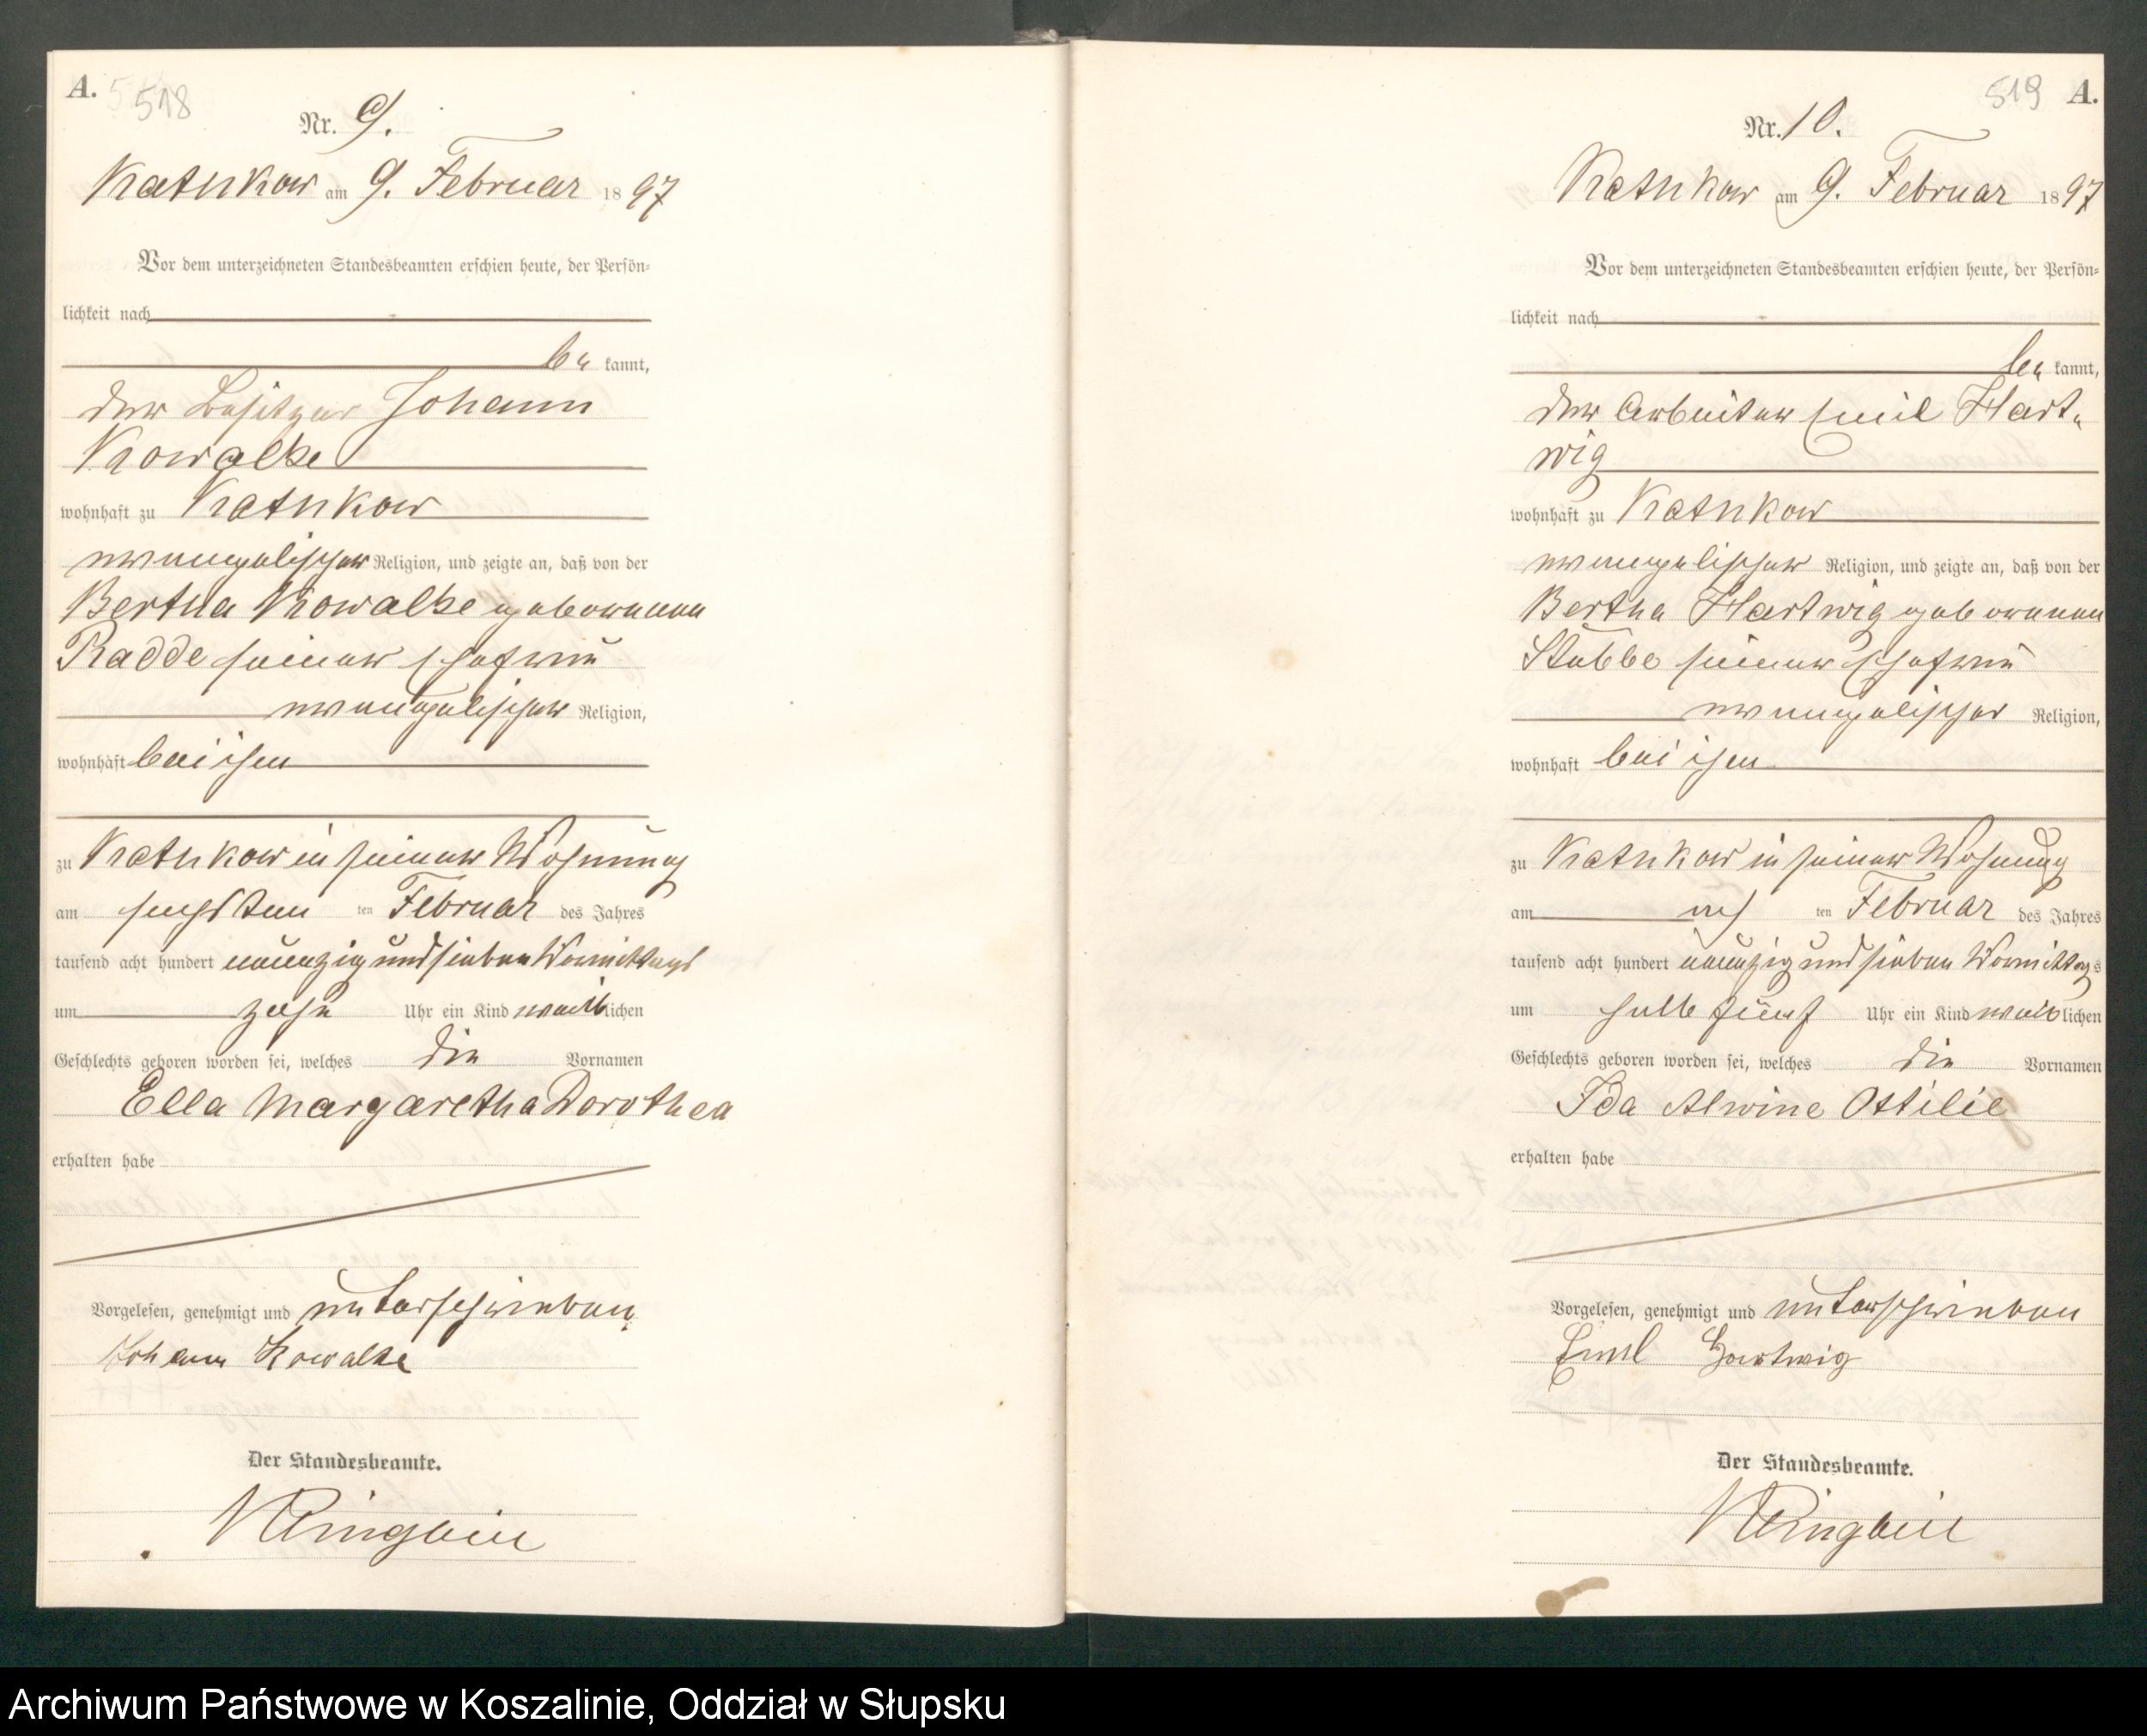 A. 518
Nr. 9.
Kathkow am 9. Februar 1897
Vor dem unterzeichneten Standesbeamten erschien heute, der Persön-
lichkeit nach
be kannt,
der Besitzer Johann
Kowalke
wohnhaft zu Kathkow
evangelischer Religion, und zeigte an, daß von der
Bertha Kowalke geborenen
Radde seiner Ehefrau
evangelischer Religion,
wohnhaft bei ihm
zu Kathkow in seiner Wohnung
am sechsten ten Februar des Jahres
tausend acht hundert neunzig und sieben Vormittags
um zehn Uhr ein Kind weiblichen
Geschlechts geboren worden sei, welches die Vornamen
Ella Margaretha Dorothea
erhalten habe
Vorgelesen, genehmigt und unterschrieben
Johann Kowalke
Der Standesbeamte.
Klingbeil
519 A.
Nr. 10.
Kathkow am 9. Februar 1897
Vor dem unterzeichneten Standesbeamten erschien heute, der Persön-
lichkeit nach
be kannt,
der Arbeiter Emil Hart-
wig
wohnhaft zu Kathkow
evangelischer Religion, und zeigte an, daß von der
Bertha Hartwig geborenen
Stubbe seiner Ehefrau
evangelischer Religion,
wohnhaft bei ihm
zu Kathkow in seiner Wohnung
am ten Februar des Jahres
tausend acht hundert neunzig und sieben Vormittags
um halb fünf Uhr ein Kind weiblichen
Geschlechts geboren worden sei, welches die Vornamen
Ida Alwine Ottilie
erhalten habe
Vorgelesen, genehmigt und unterschrieben
Emil Hartwig
Der Standesbeamte.
Klingbeil
Archiwum Państwowe w Koszalinie, Oddział w Słupsku